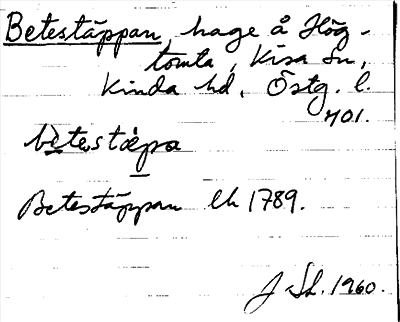 Betestäppan, hage å Hög-
tomta, Kisa sn,
Kinda hd, Östg. l.
401.
be̱testæpa
Betestäppan lh 1789.
J Sh. 1960.